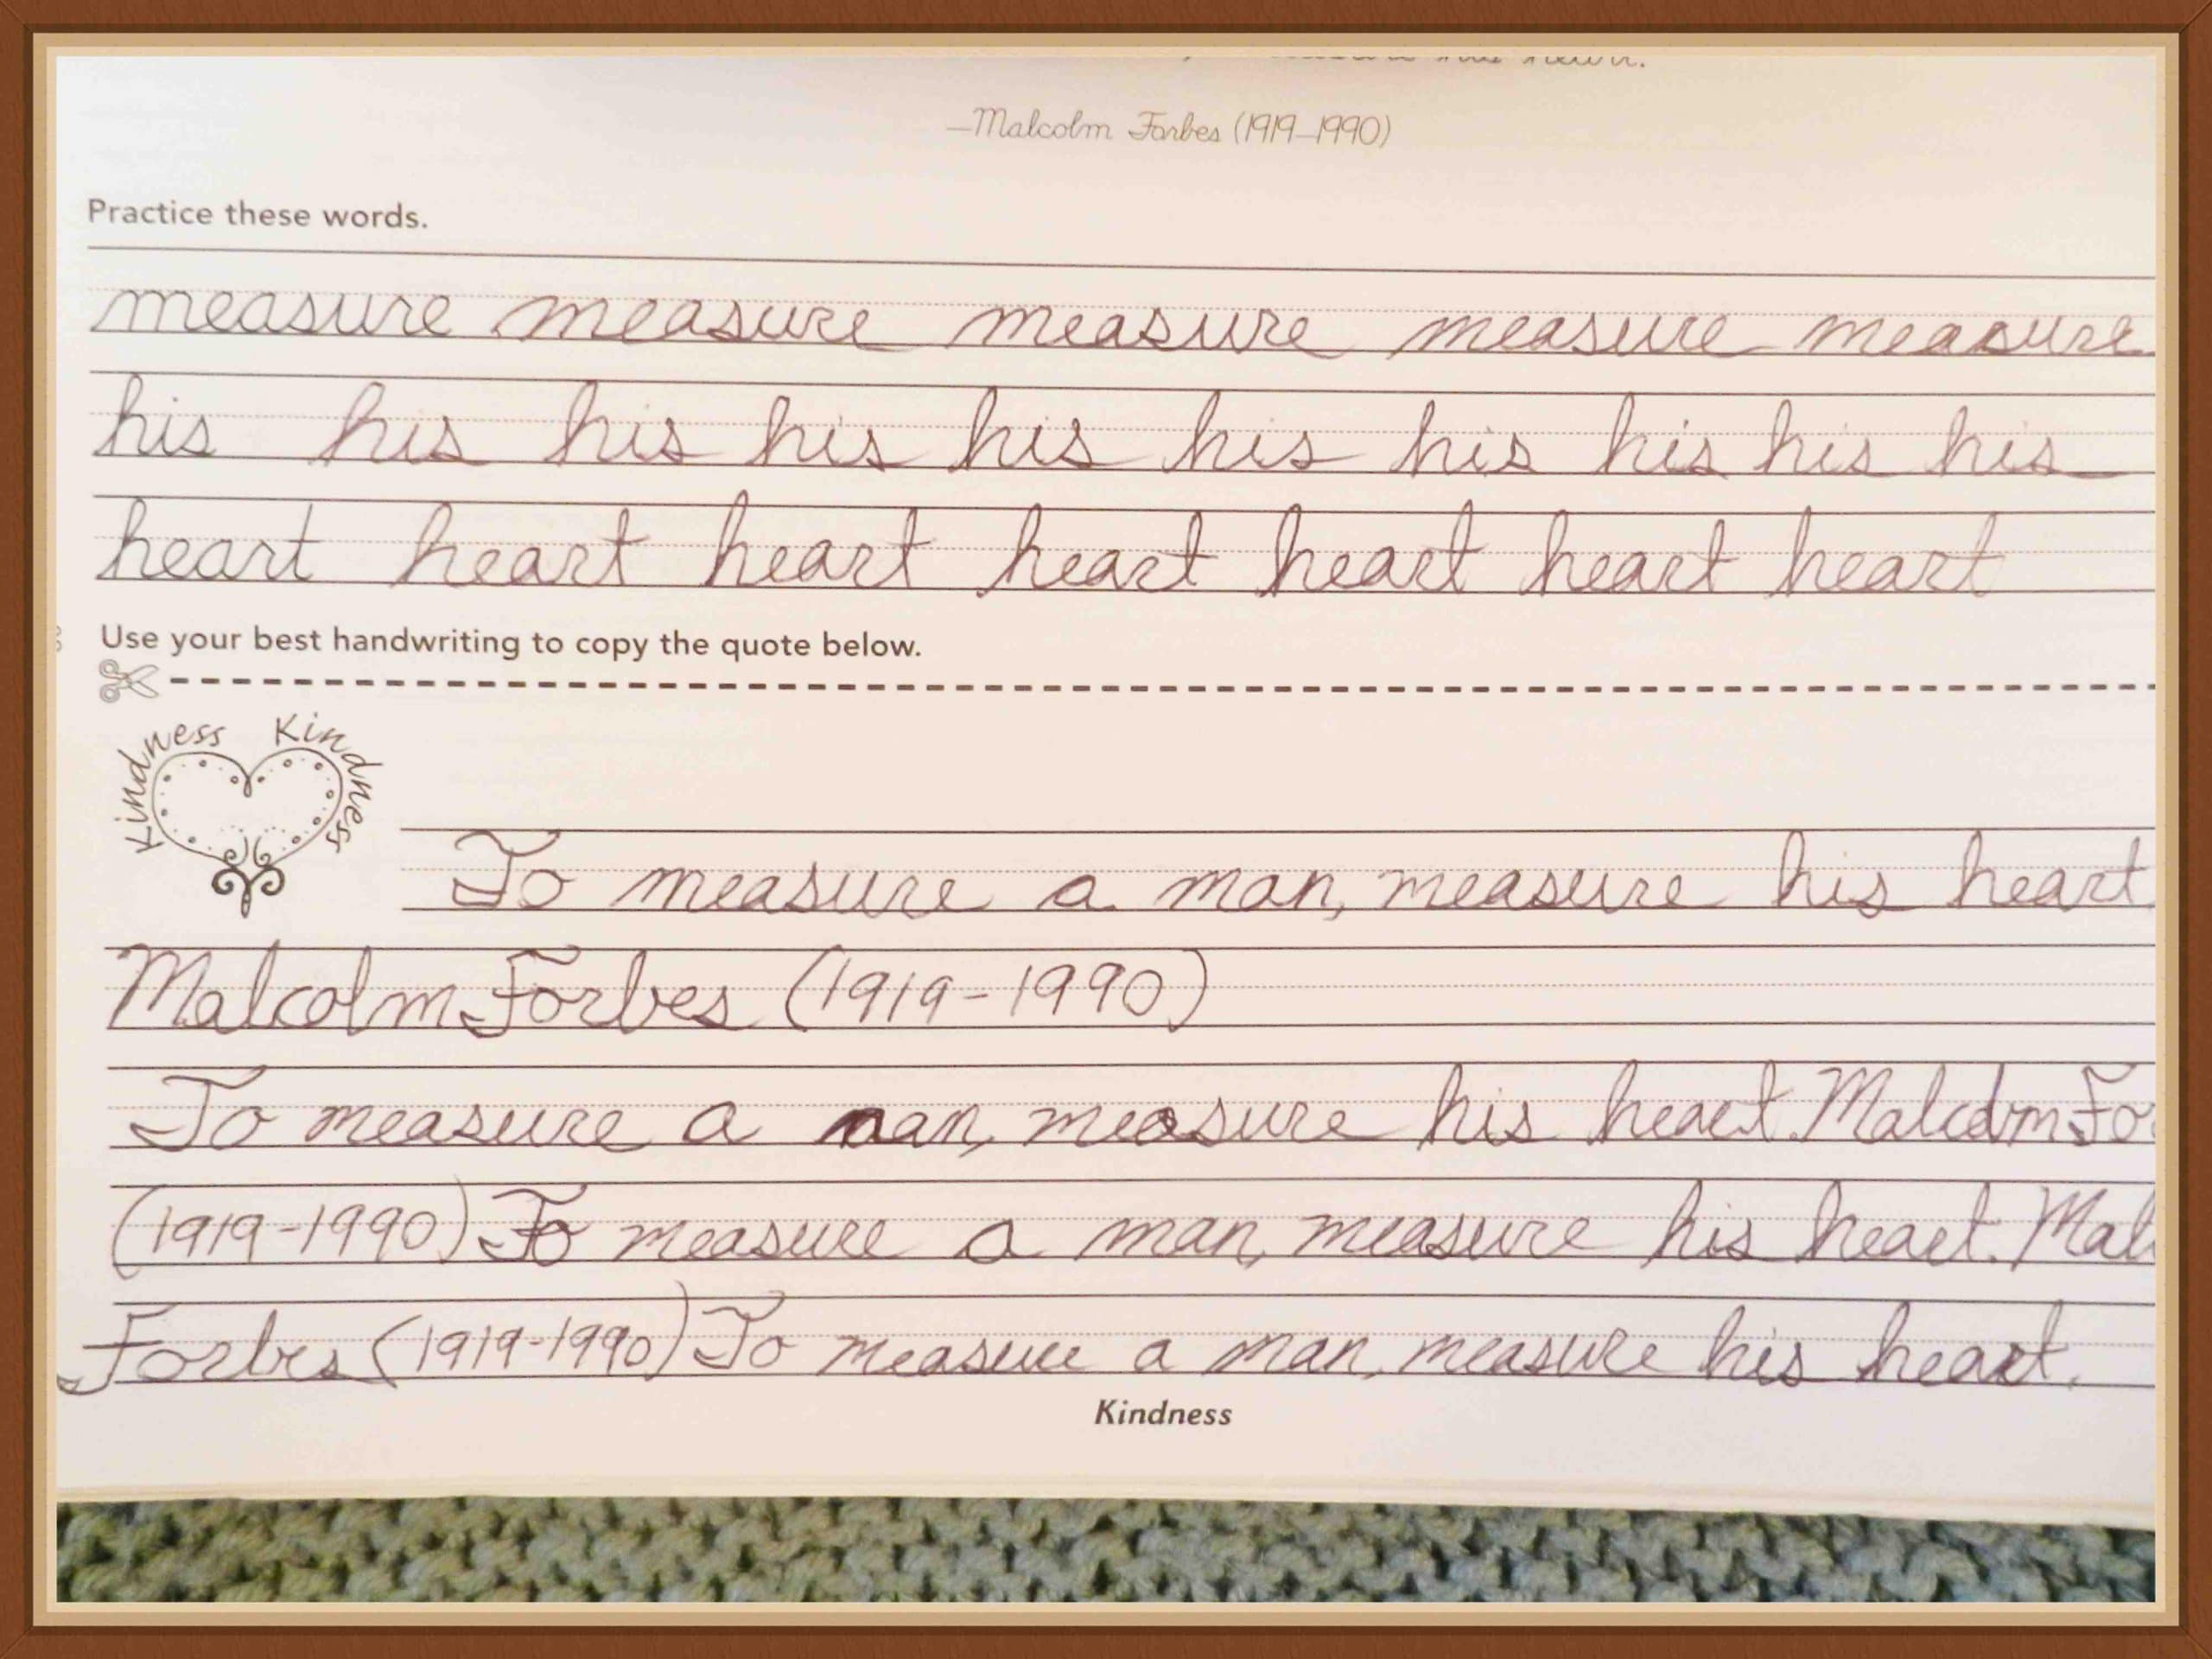 heart.
—Malcolm Forbes (1919–1990)
Practice these words.
measure measure measure measure measure
his his his his his his his his his his
heart heart heart heart heart heart heart
Use your best handwriting to copy the quote below.
Kindness Kindness
To measure a man, measure his heart
Malcolm Forbes (1919-1990)
To measure a man, measure his heart. Malcolm Fo
(1919-1990) To measure a man, measure his heart. Mal
Forbes (1919-1990) To measure a man, measure his heart.
Kindness